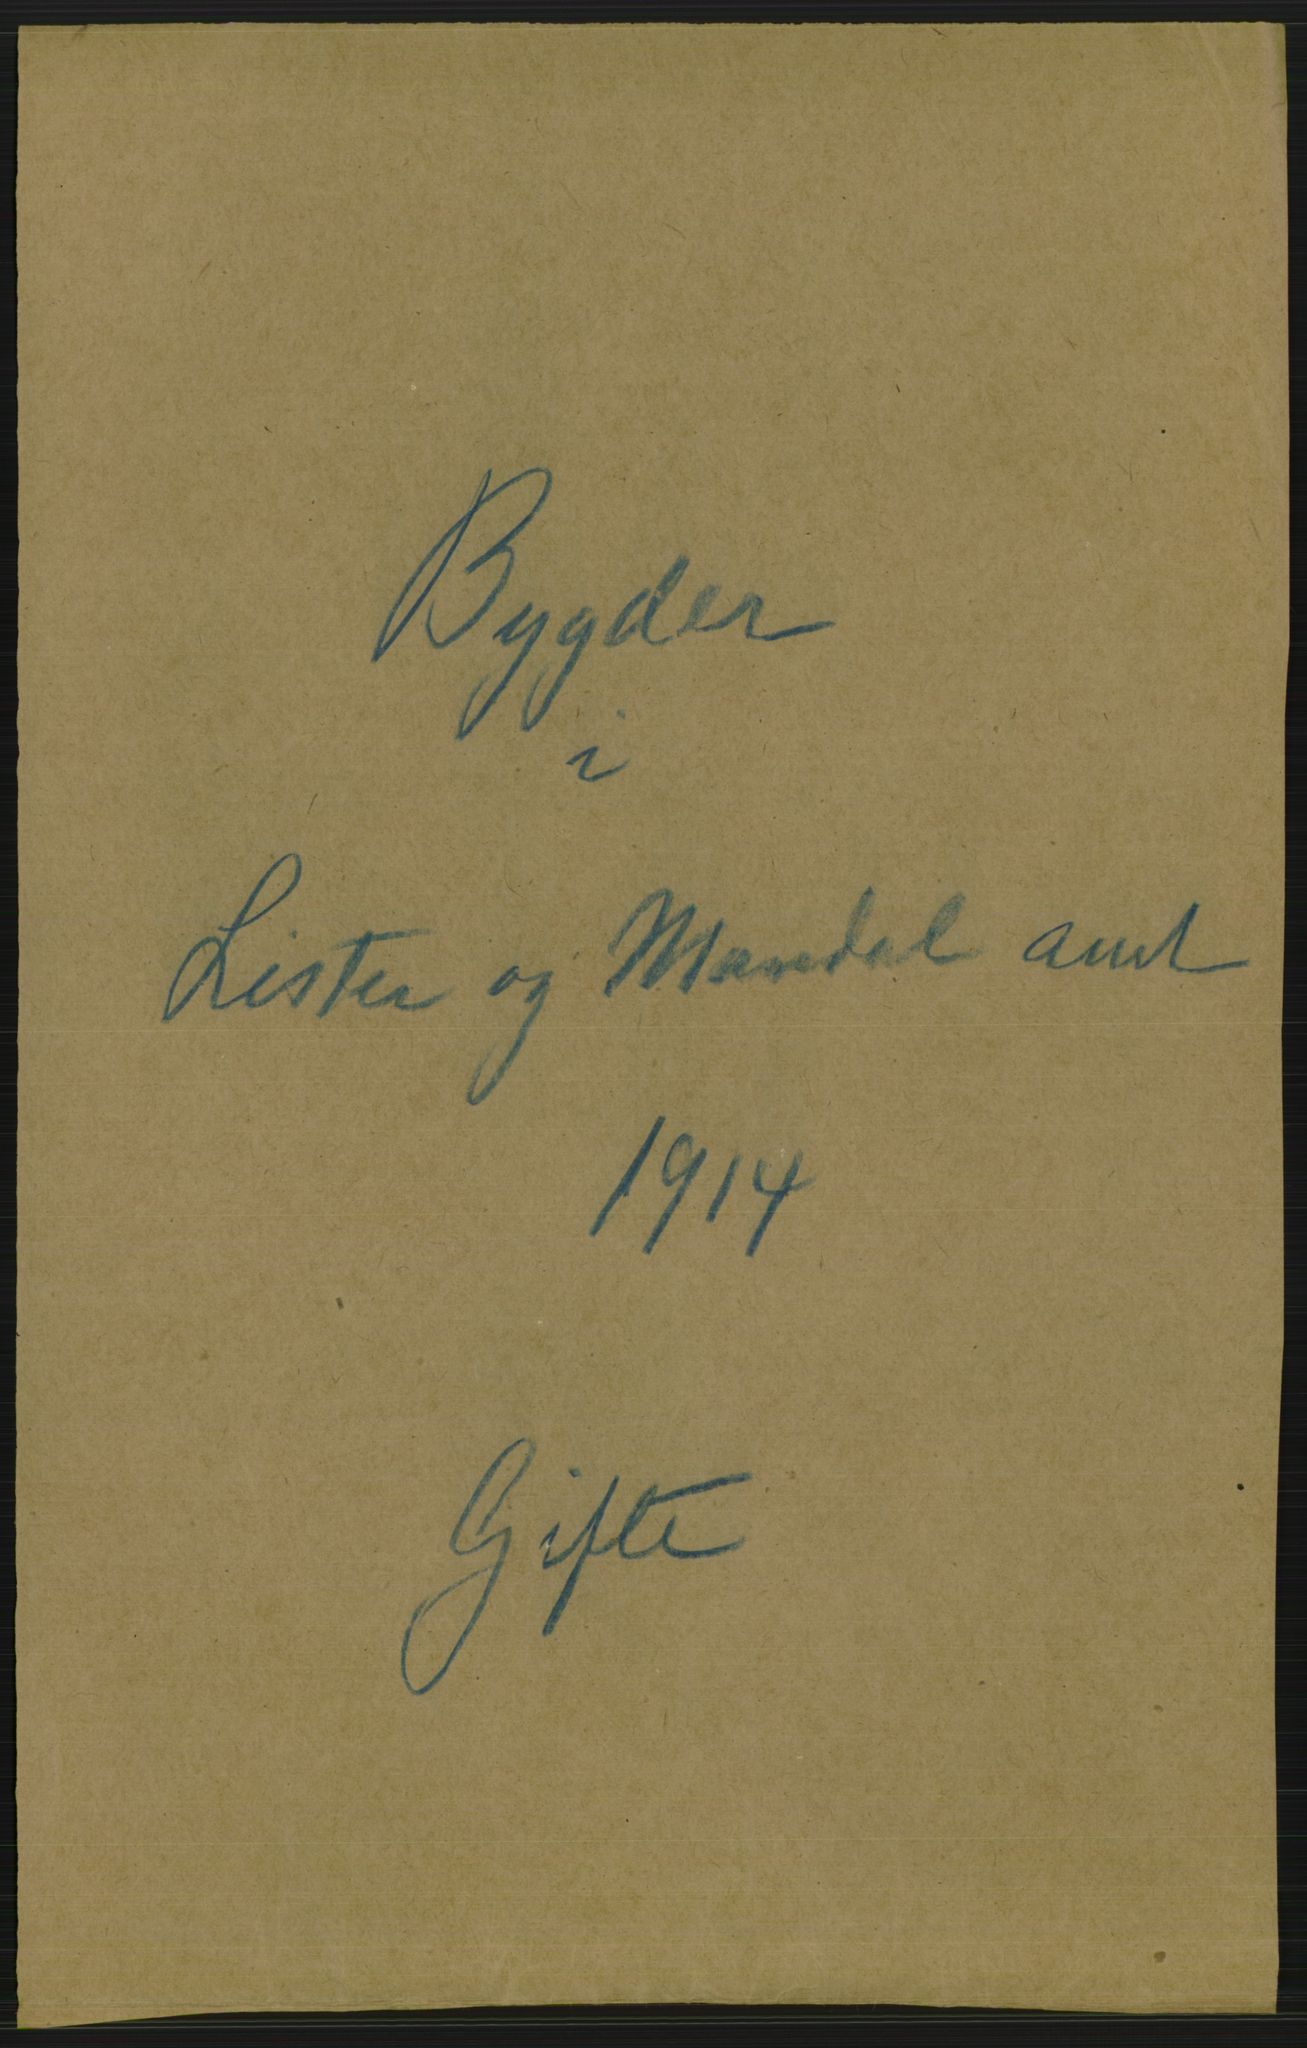 Bygder
i
Lister og Mandal amt
1914
Gifte